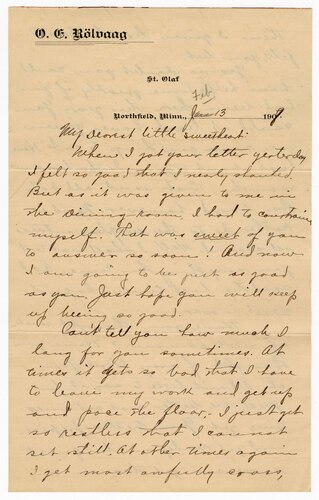 O. E. Rölvaag
St. Olaf
Feb
Northfield, Minn., Jan 13 190
My Dearest little sweetheart:
When I got your letter yesterday
I felt so good that I nearly shouted.
But as it was given to me in
the dining-room, I had to constrain
myself. That was sweet of you
to answer so soon! And now
I am going to be just as good
as you. Just hope you will keep
up beeing so good.
Can't tell you how much I
long for you sometimes. At
times it gets so bad that I have
to leave my work and get up
and pace the floor. I just get
so restless that I can not
set still. At other times again
I get most awfully cross,